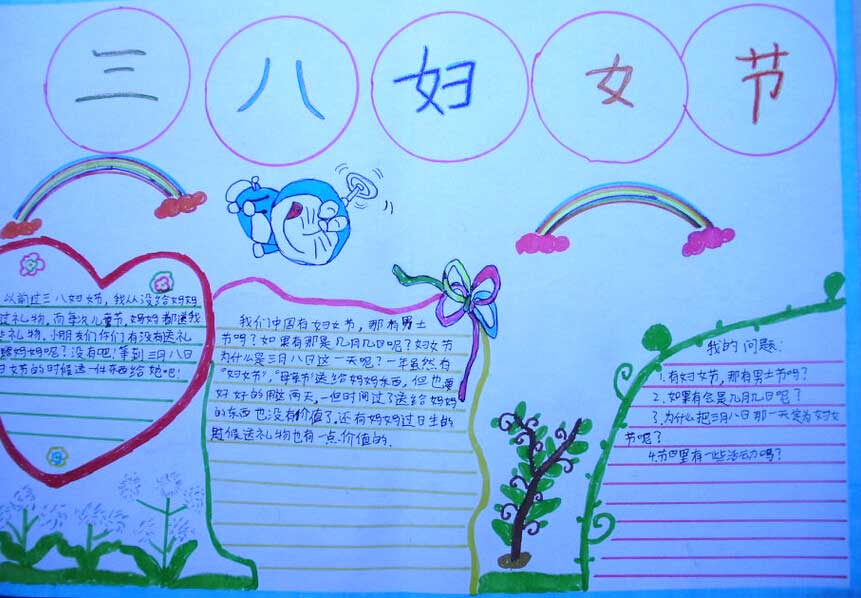 三八妇女节
以前过三八妇女节,我从没给妈妈
过礼物,而每次儿童节,妈妈都送我
礼物,小朋友们你们有没有送礼
妈妈呢?没有吧!等到三月八日
妇女节的时候送一件东西给她吧!
我们中国有妇女节,那有男士
节吗?如果有那是几月几日呢?妇女节
为什么是三月八日这一天呢?一年虽然有
“妇女节”,“母亲节”送给妈妈东西,但也要
好好的用这两天,一但时间过了送给妈妈
的东西也没有价值了.还有妈妈过日生的
时候送礼物也有一点价值的.
我的问题:
1.有妇女节,那有男士节吗?
2.如果有会是几月几日呢?
3.为什么把三月八日那一天定为妇女
节呢?
4.节日里有一些活动吗?